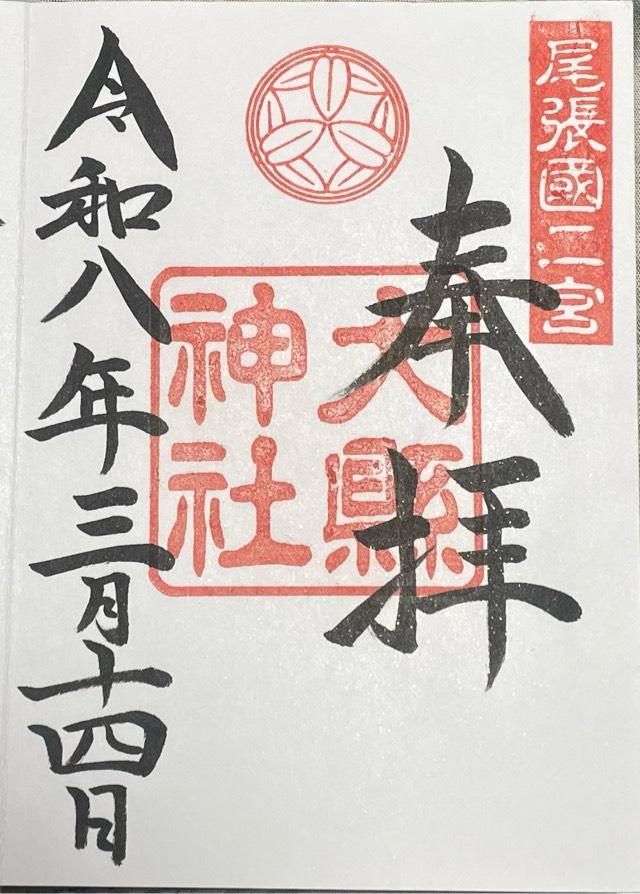 尾張國二宮
奉拝
大縣神社
令和八年三月十四日